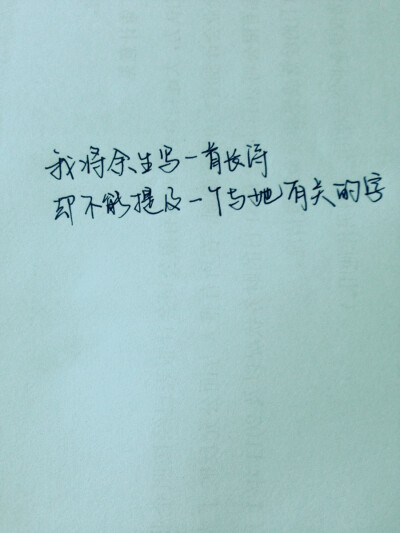 我将余生写一首长诗
却不能提及一个与她有关的字